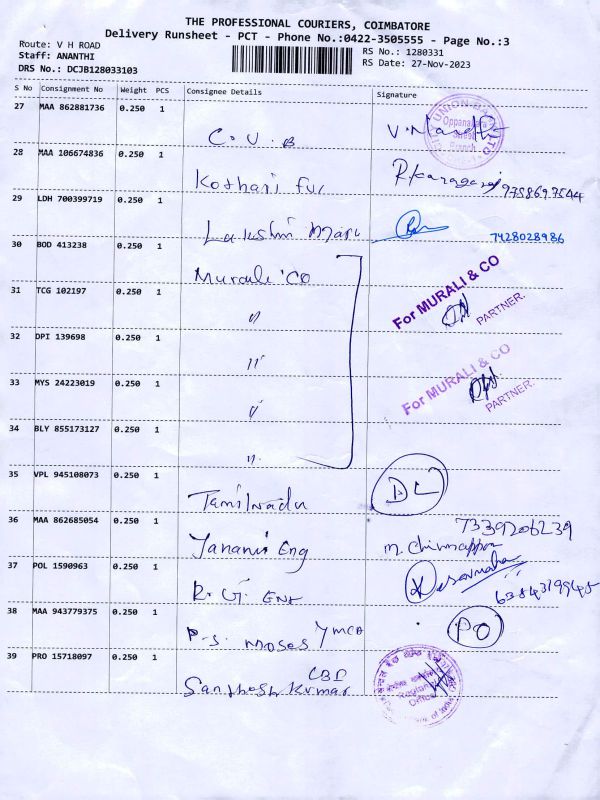 THE PROFESSIONAL COURIERS, COIMBATORE
Delivery Runsheet - PCT - Phone No.:0422-3505555 - Page No.:3
Route: V H ROAD
Staff: ANANTHI
DRS No.: DCJB128033103
RS No.: 1280331
RS Date: 27-Nov-2023
S No Consignment No Weight PCS Consignee Details Signature
27 MAA 862881736 0.250 1
C.U.B
28 MAA 106674836 0.250 1
Kothari 9758697544
29 LDH 700399719 0.250 1
Lakshmi 7428028986
30 BOD 413238 0.250 1
Murali CO
For MURALI & CO
PARTNER.
31 TCG 102197 0.250 1
"
32 DPI 139698 0.250 1
"
For MURALI & CO
PARTNER.
33 MYS 24223019 0.250 1
"
34 BLY 855173127 0.250 1
"
35 VPL 945108073 0.250 1
Tamilnadu DL
36 MAA 862685054 0.250 1
7339206239
Eng
37 POL 1590963 0.250 1
R.G. Ent
38 MAA 943779375 0.250 1
P.S. Moses YMCA PO
39 PRO 15718097 0.250 1
Santhosh Kumar CBI
Regional
Office